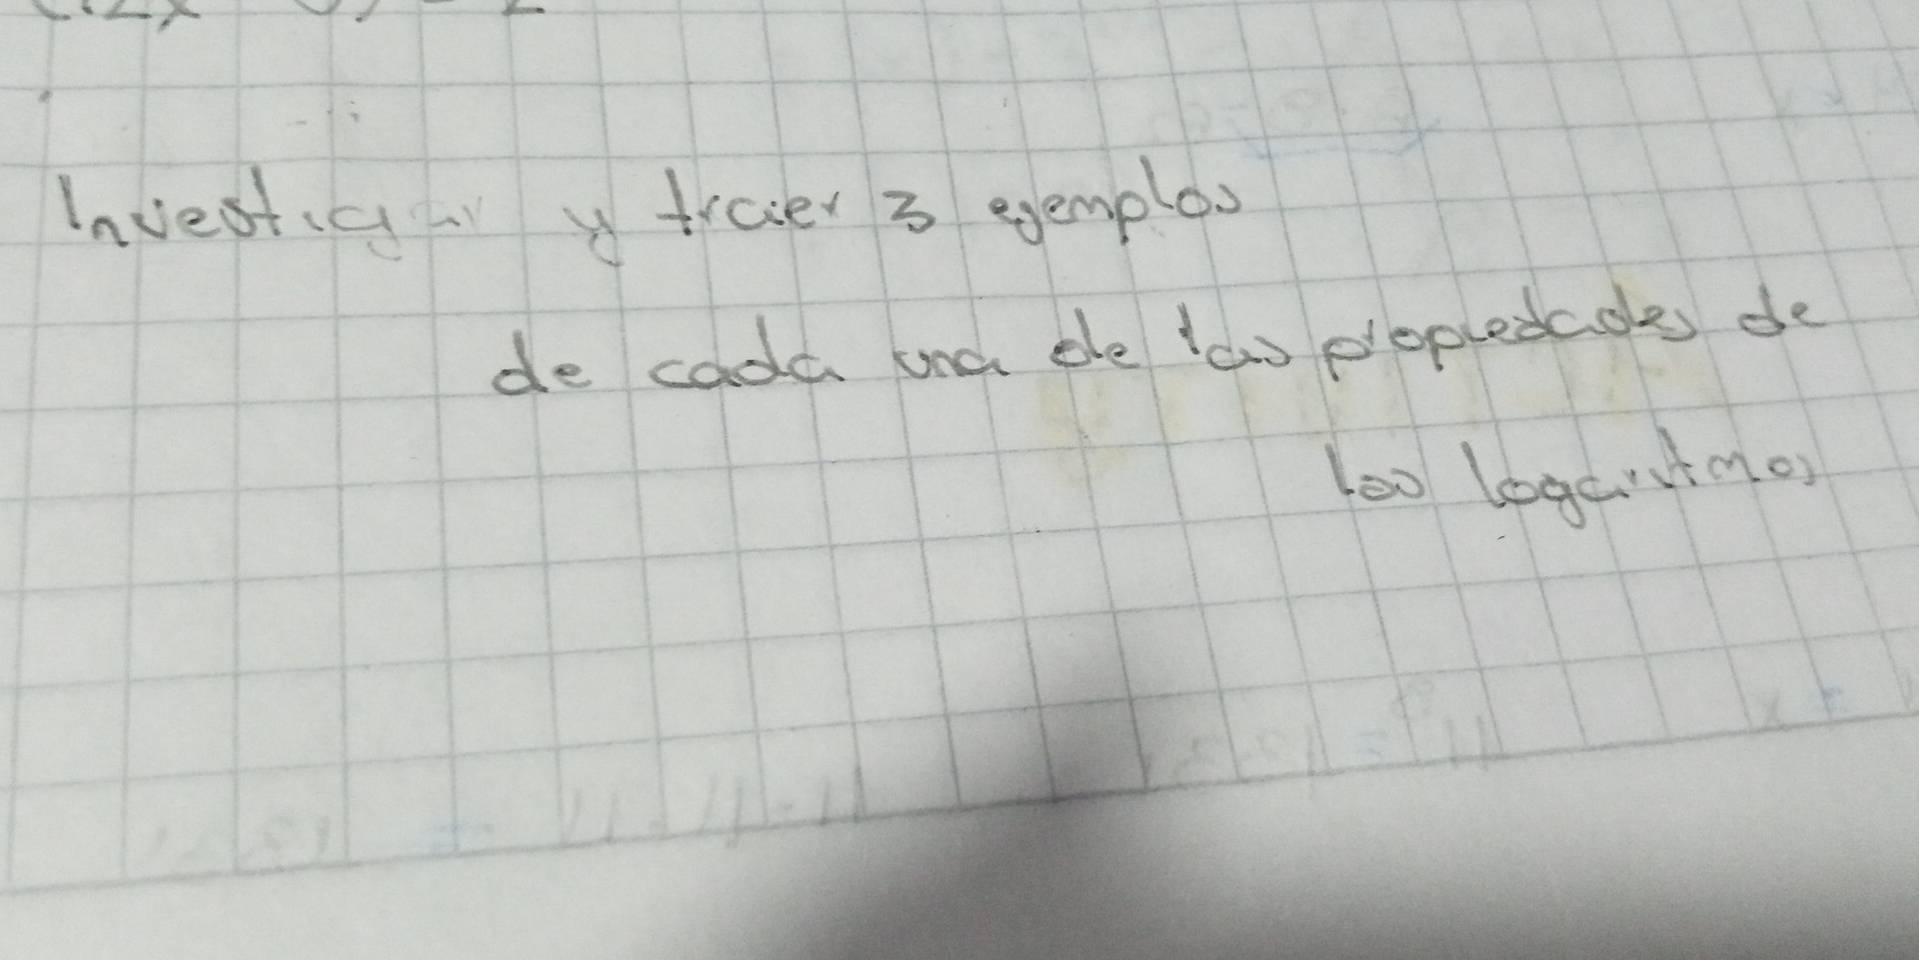 Investigar y traer 3 ejemplos
de cada una de las propiedades de
los logaritmos